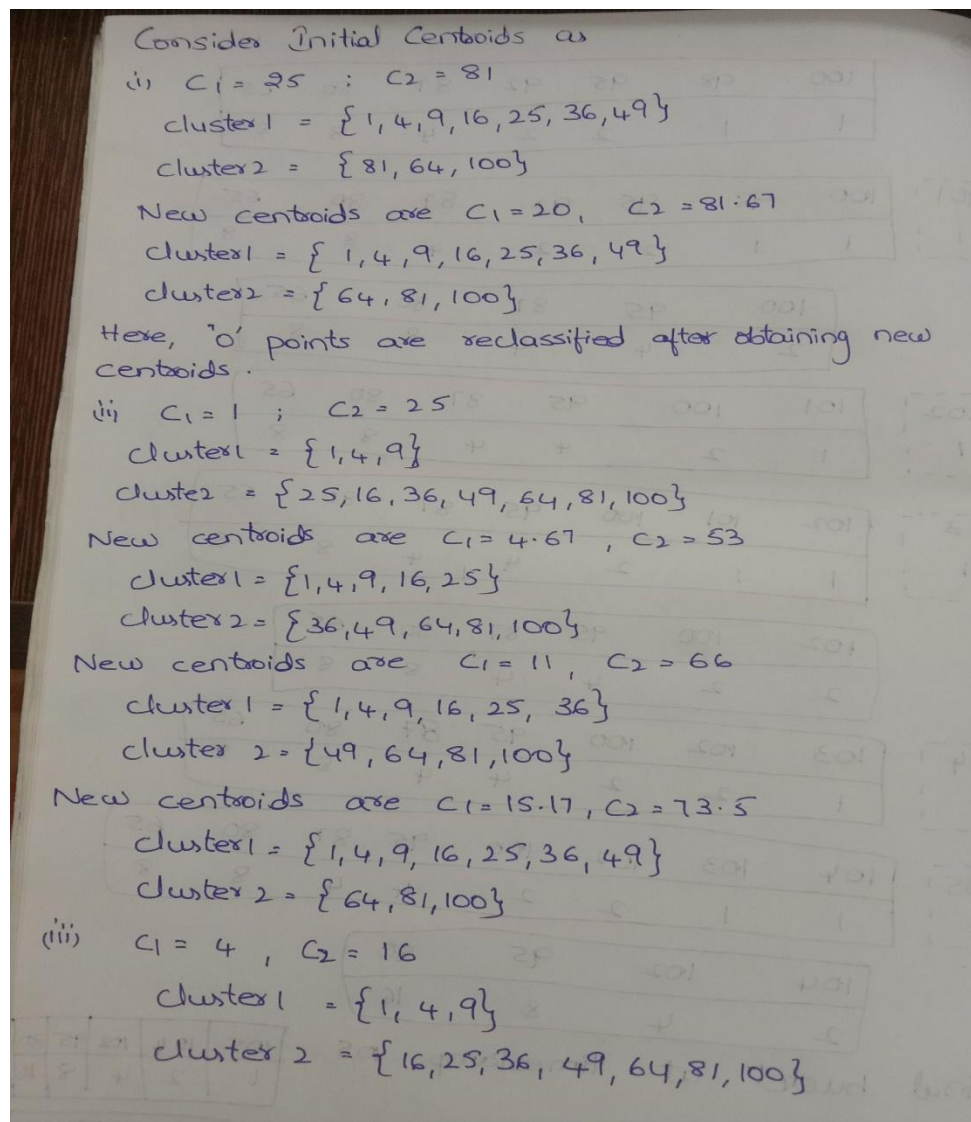 Consider Initial Centroids as
(i) C1 = 25 ; C2 = 81
cluster 1 = {1,4,9,16,25,36,49}
cluster 2 = {81,64,100}
New centroids are C1 = 20, C2 = 81.67
cluster1 = {1,4,9,16,25,36,49}
cluster2 = {64,81,100}
Here, '0' points are reclassified after obtaining new
centroids.
(ii) C1 = 1 ; C2 = 25
cluster1 = {1,4,9}
cluste2 = {25,16,36,49,64,81,100}
New centroids are C1 = 4.67, C2 = 53
cluster1 = {1,4,9,16,25}
cluster2 = {36,49,64,81,100}
New centroids are C1 = 11, C2 = 66
cluster 1 = {1,4,9,16,25,36}
cluster 2 = {49,64,81,100}
New centroids are C1 = 15.17, C2 = 73.5
cluster1 = {1,4,9,16,25,36,49}
cluster 2 = {64,81,100}
(iii) C1 = 4, C2 = 16
cluster 1 = {1,4,9}
cluster 2 = {16,25,36,49,64,81,100}